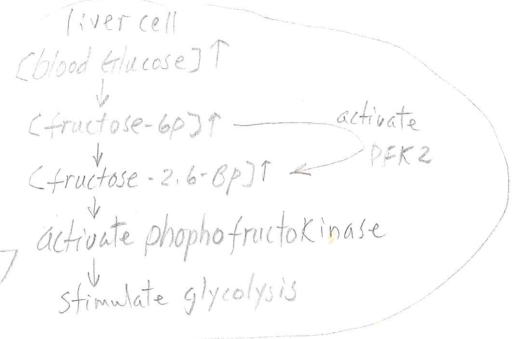 liver cell
[blood Glucose]↑
↓
[fructose-6p]↑
activate
PFK2
↓
[fructose-2.6-Bp]↑
↓
activate phophofructokinase
↓
stimulate glycolysis